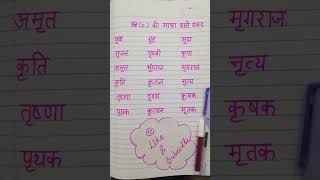 ऋ (ृ) की मात्रा वाले शब्द
गृह
सृजन पृथ्वी कृपा
अमृत मृगराज
कृति कृतज्ञ नृत्य
तृष्णा दृश्य कृषक
पृथक कृतज्ञ मृतक
Like
&
Subscribe
अमृत
कृति
तृष्णा
पृथक
मृगराज
नृत्य
कृषक
मृतक